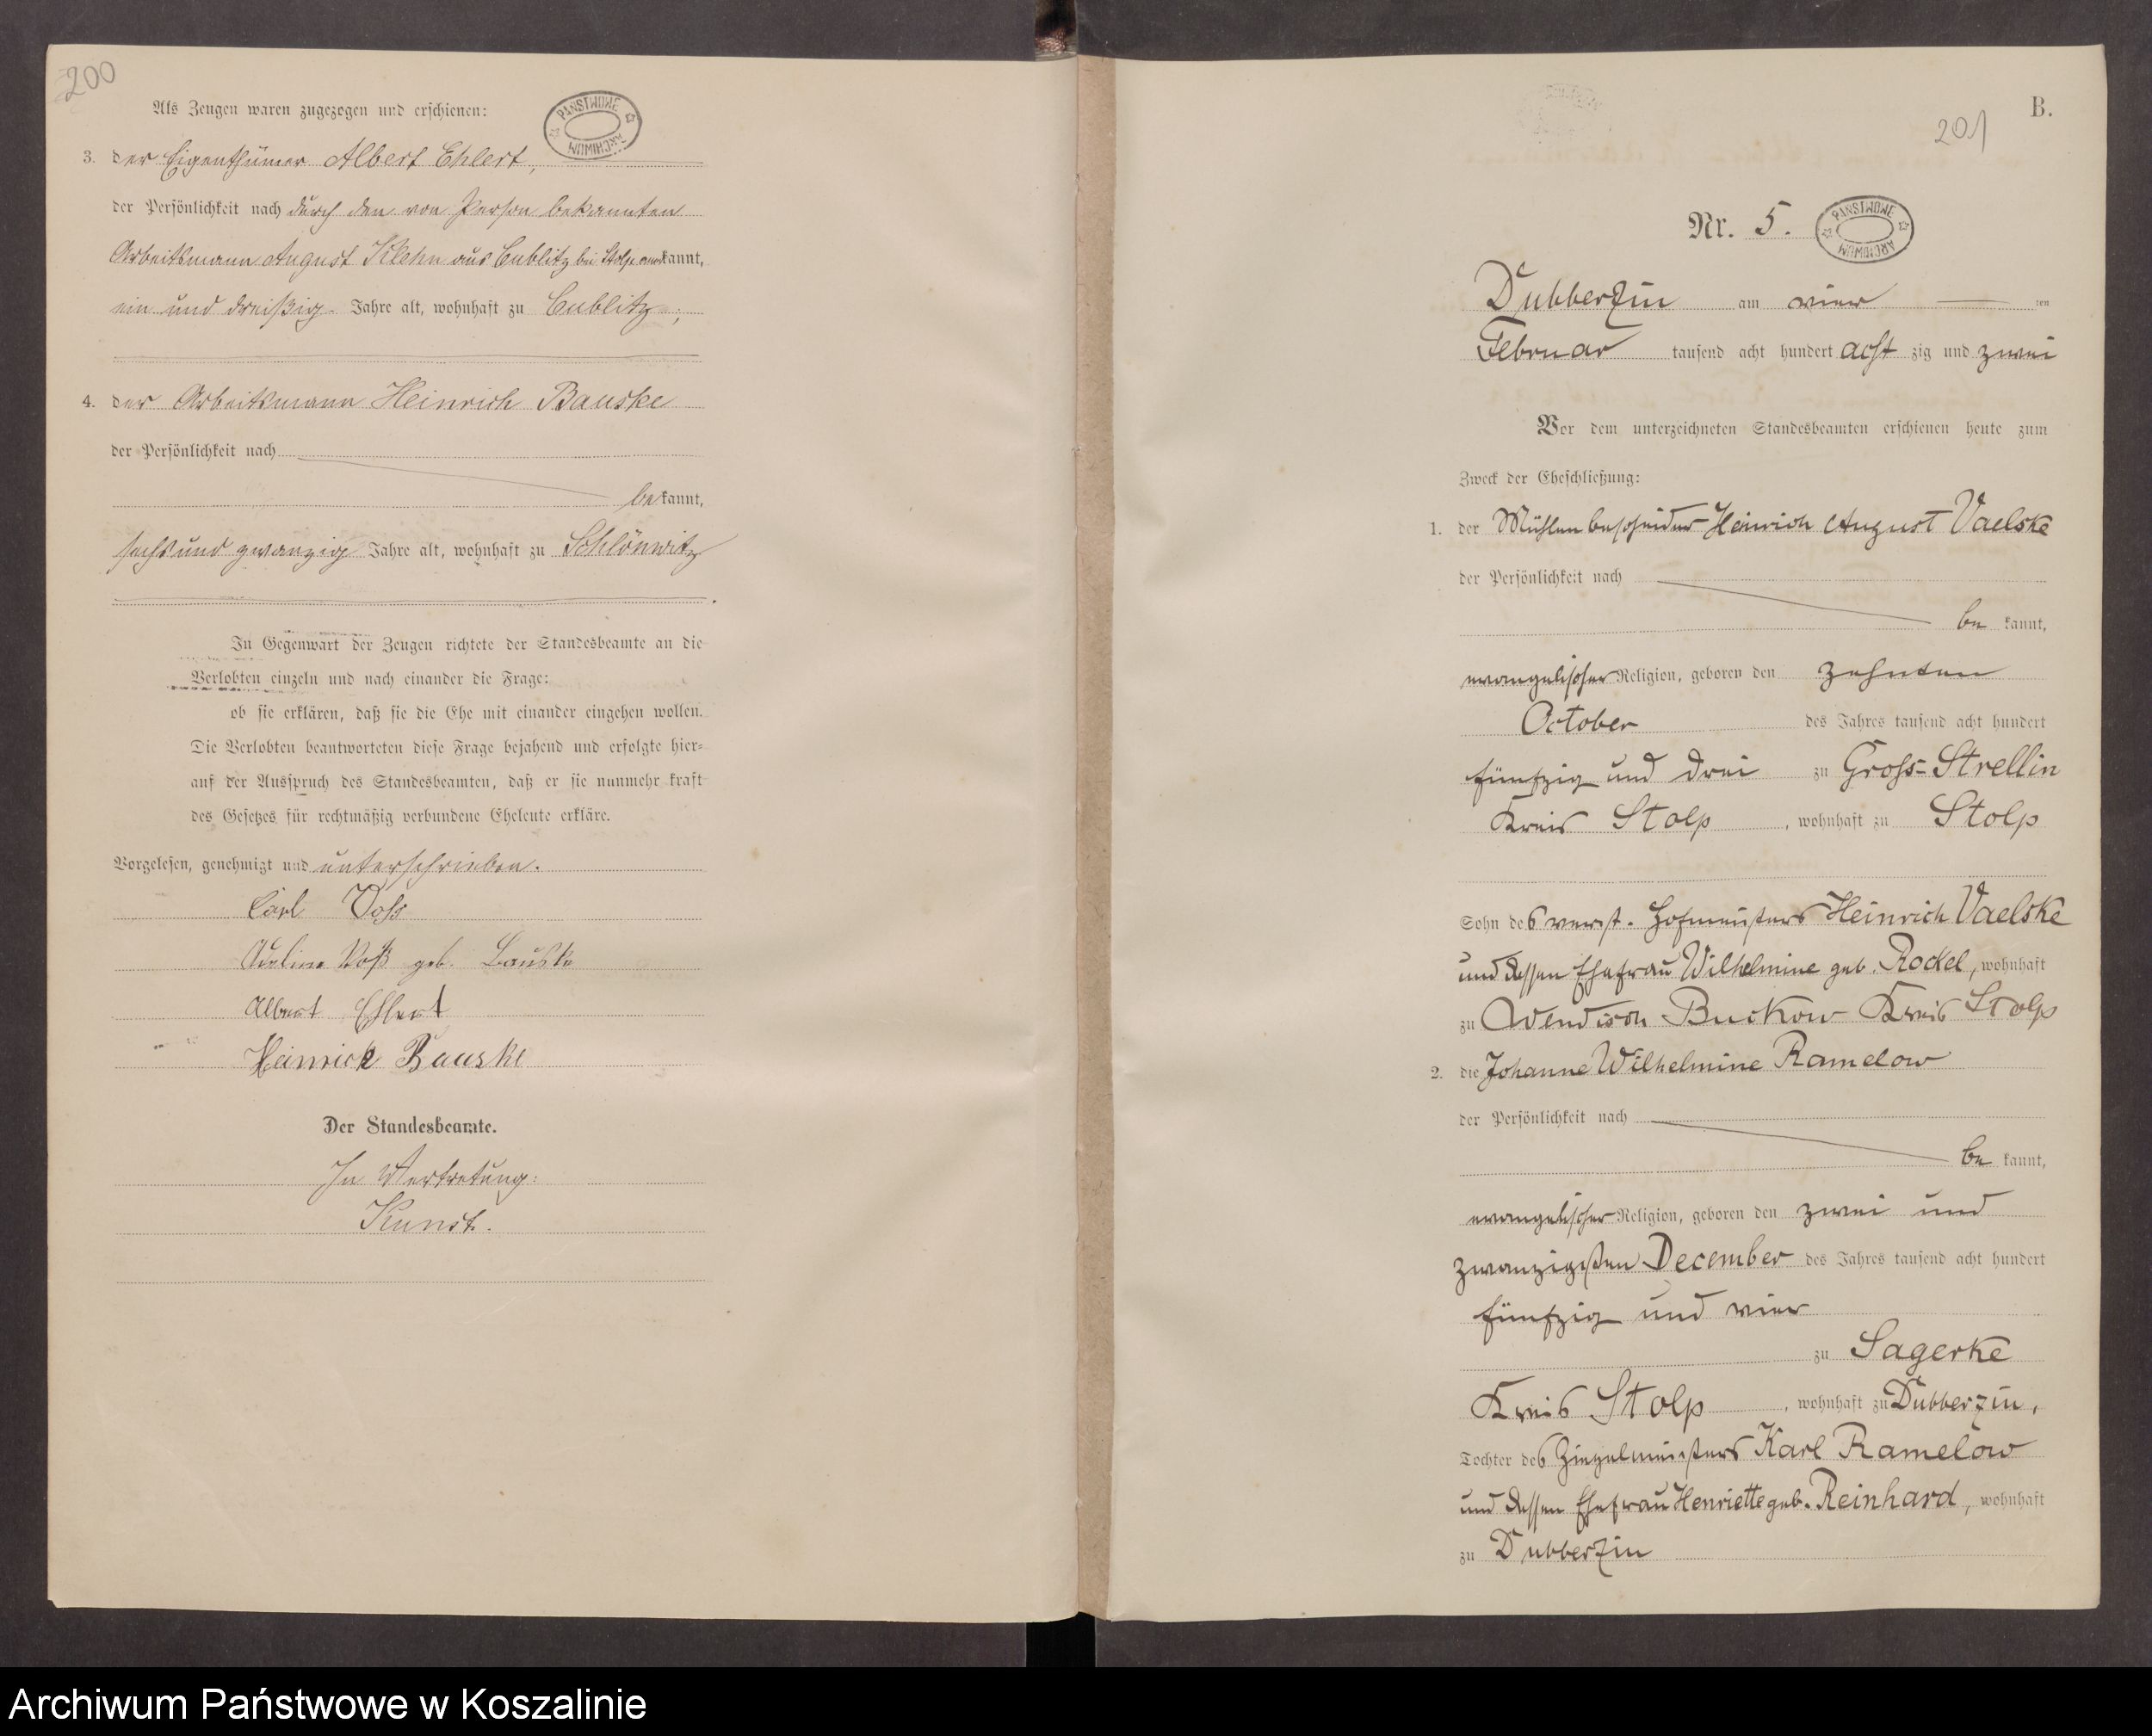 200
Als Zeugen waren zugezogen und erschienen:
PAŃSTWOWE ARCHIWUM
3. der Eigenthümer Albert Ehlert,
der Persönlichkeit nach durch den von Person bekannten
Arbeitsmann August Klehn aus Cublitz bei Stolp anerkannt,
ein und dreißig Jahre alt, wohnhaft zu Cublitz;
4. der Arbeitsmann Heinrich Bauske
der Persönlichkeit nach
bekannt,
sechs und zwanzig Jahre alt, wohnhaft zu Schlönwitz
In Gegenwart der Zeugen richtete der Standesbeamte an die
Verlobten einzeln und nach einander die Frage:
ob sie erklären, daß sie die Ehe mit einander eingehen wollen.
Die Verlobten beantworteten diese Frage bejahend und erfolgte hier-
auf der Ausspruch des Standesbeamten, daß er sie nunmehr kraft
des Gesetzes für rechtmäßig verbundene Eheleute erkläre.
Vorgelesen, genehmigt und unterschrieben.
Carl Voss
Adeline Voß geb. Bauske
Albert Ehlert
Heinrich Bauske
Der Standesbeamte.
In Vertretung:
Kunst.
B.
201
Nr. 5.
PAŃSTWOWE ARCHIWUM
Dubberzin am vier ten
Februar tausend acht hundert acht zig und zwei
Vor dem unterzeichneten Standesbeamten erschienen heute zum
Zweck der Eheschließung:
1. der Mühlenbescheider Heinrich August Vaelske
der Persönlichkeit nach
be kannt,
evangelischer Religion, geboren den zehnten
October des Jahres tausend acht hundert
fünfzig und drei zu Gross-Strellin
Kreis Stolp, wohnhaft zu Stolp
Sohn des verst. Hofmeisters Heinrich Vaelske
und dessen Ehefrau Wilhelmine geb. Rockel, wohnhaft
zu Wendisch Buckow Kreis Stolp
2. die Johanne Wilhelmine Ramelow
der Persönlichkeit nach
be kannt,
evangelischer Religion, geboren den zwei und
zwanzigsten December des Jahres tausend acht hundert
fünfzig und vier
zu Sagerke
Kreis Stolp, wohnhaft zu Dubberzin,
Tochter des Ziegelmeisters Karl Ramelow
und dessen Ehefrau Henriette geb. Reinhard, wohnhaft
zu Dubberzin
Archiwum Państwowe w Koszalinie